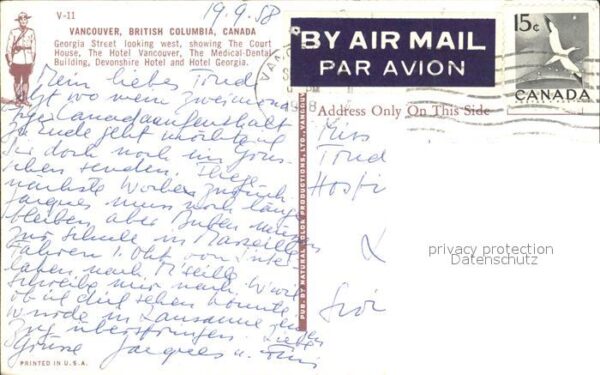 19.9.58
V-11
VANCOUVER, BRITISH COLUMBIA, CANADA
Georgia Street looking west, showing The Court
House, The Hotel Vancouver, The Medical-Dental
Building, Devonshire Hotel and Hotel Georgia.
BY AIR MAIL
PAR AVION
15¢
CANADA
Address Only On This Side
Mein liebes Trud
Jetzt wo mein zweimonatiger
Canadaaufenthalt
zu Ende geht möchte ich
Dir doch noch ein Grüss-
chen senden. Fliege
nächste Woche zurück.
Jacques muss noch länger
bleiben aber Buben müssen
zur Schule in Marseille
Fahren 1. Okt von Inter-
laken nach M'seille
schreibe mir nach. Würde
ob ich dich sehen könnte
würde in Lausanne ein
Zug überspringen. Liebe
Grüsse Jacques u.
Miss
Trud
PUB. BY NATURAL COLOR PRODUCTIONS, LTD., VANCOUVER
privacy protection
Datenschutz
PRINTED IN U.S.A.